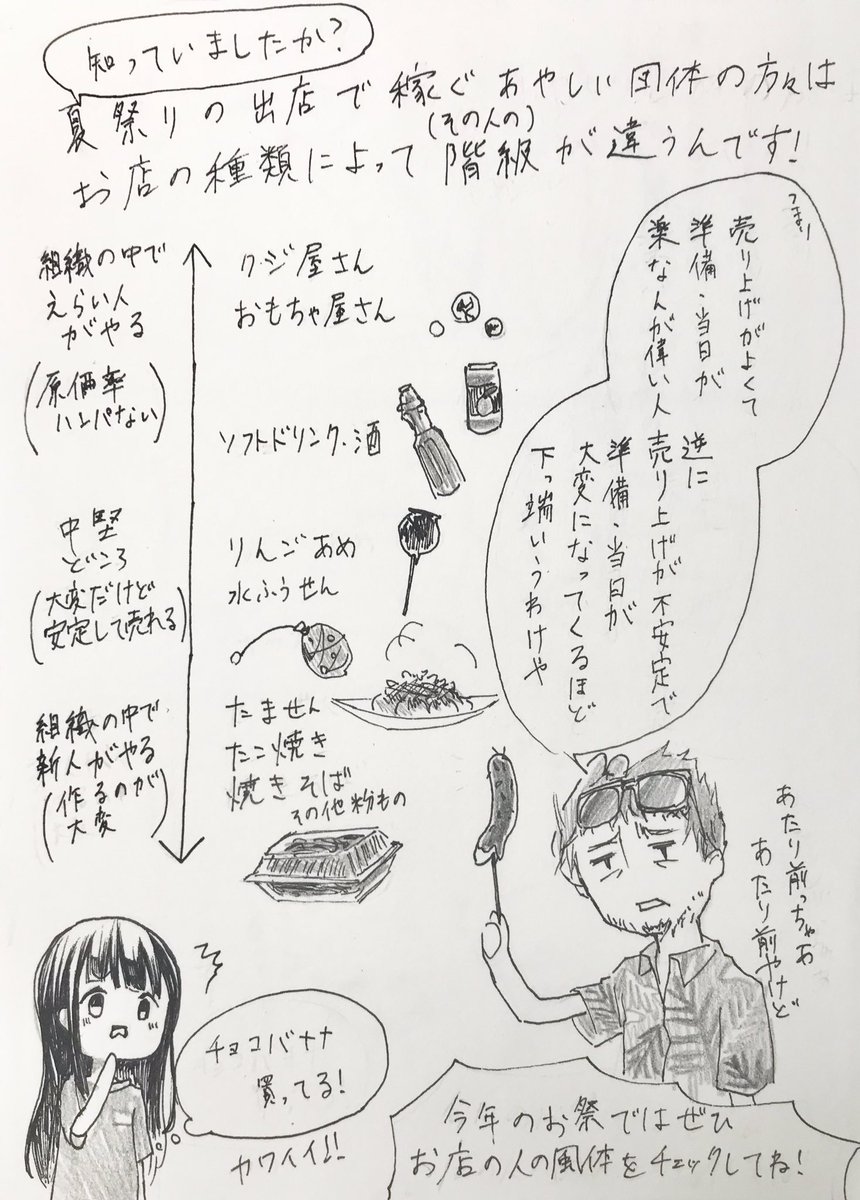 知っていましたか?
夏祭りの出店で稼ぐあやしい団体の方々は
(その人の)
お店の種類によって階級が違うんです!
つまり
売り上げがよくて
準備・当日が
楽な人が偉い人
逆に
売り上げが不安定で
準備・当日が
大変になってくるほど
下っ端いうわけや
組織の中で
えらい人
がやる
(原価率
ハンパない)
クジ屋さん
おもちゃ屋さん
ソフトドリンク・酒
中堅
どころ
(大変だけど
安定して売れる)
りんごあめ
水ふうせん
組織の中で
新人がやる
(作るのが
大変)
たません
たこ焼き
焼きそば
その他粉もの
あたり前っちゃあ
あたり前やけど
チョコバナナ
買ってる!
カワイイ!!
今年のお祭ではぜひ
お店の人の風体をチェックしてね!